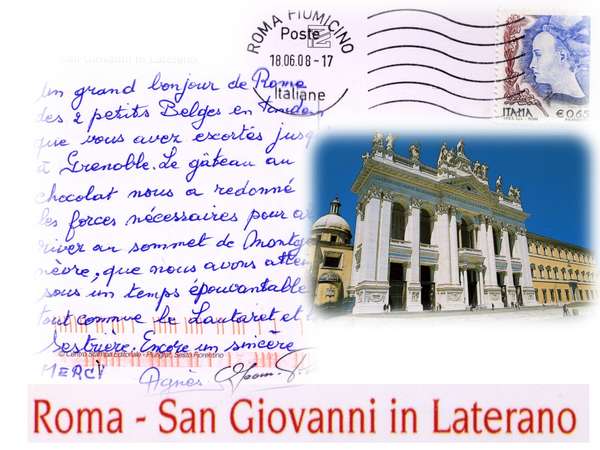 San Giovanni in Laterano
ROMA FIUMICINO
Poste
18.06.08 - 17
Italiane
ITALIA
€0,65
Un grand bonjour de Rome
des 2 petits Belges en tandem
que vous avez escortés jusq
à Grenoble. Le gâteau au
chocolat nous a redonné
les forces nécessaires pour ar
river au sommet de Montge
nèvre, que nous avons attein
sous un temps épouvantable
tout comme le Lautaret et l
Sestrière. Encore un sincère
© Centro Stampa Editoriale - Plurigraf, Sesto Fiorentino
MERCI
Agnès
Roma - San Giovanni in Laterano